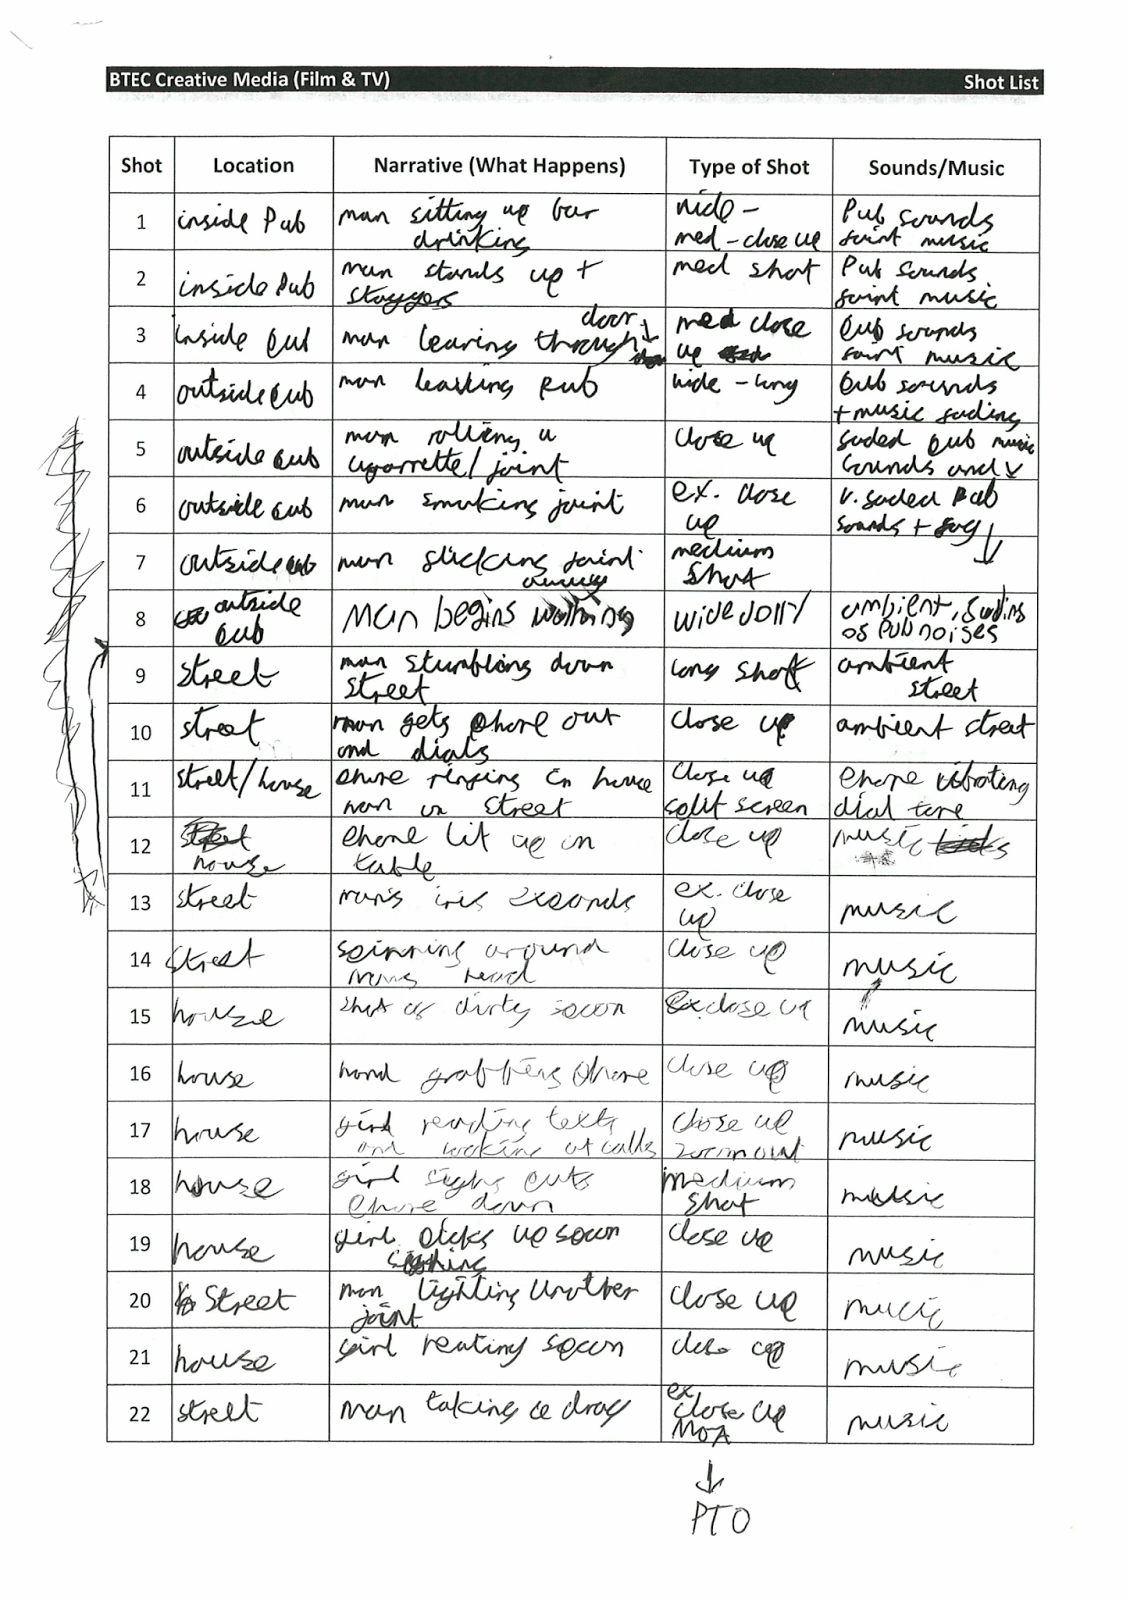 BTEC Creative Media (Film & TV) Shot List
Shot Location Narrative (What Happens) Type of Shot Sounds/Music
1 inside Pub man sitting up bar drinking wide - med-close up Pub sounds faint music
2 inside Pub man stands up + staggers med shot Pub sounds faint music
3 inside pub man leaving through door med close up pub sounds faint music
4 outside pub man leaving pub wide - long pub sounds + music fading
5 outside pub man rolling a cigarrette/joint close up faded pub music sounds and
6 outside pub man smoking joint ex. close up v. faded pub sounds +
7 outside pub man flicking joint away medium shot
8 outside pub Man begins walking wide dolly ambient, fading of pub noises
9 street man stumbling down street long shot ambient street
10 street man gets phone out and dials close up ambient street
11 street/house phone ringing in house man in street close up split screen phone vibrating dial tone
12 house phone lit up on table close up music
13 street man's iris expands ex. close up music
14 street spinning around mans head close up music
15 house shot of dirty spoon ex close up music
16 house hand grabbing phone close up music
17 house girl reading texts and looking at calls close up zoom out music
18 house girl sighs puts phone down medium shot music
19 house girl picks up spoon close up music
20 Street man lighting another joint close up music
21 house girl heating spoon close up music
22 street man taking a drag ex close up music
PTO